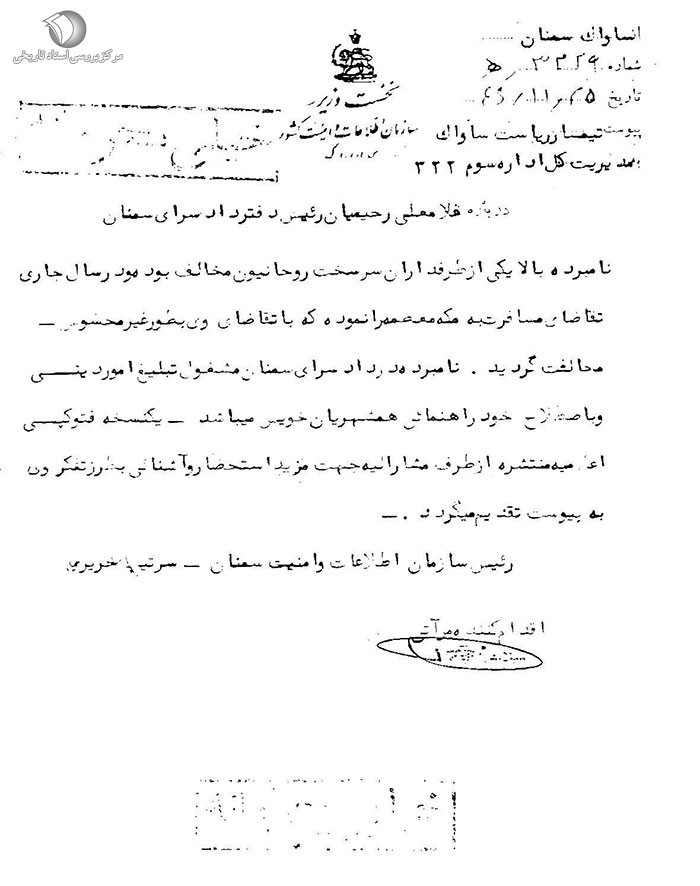 مرکز بررسی اسناد تاریخی
نخست وزیر
سازمان اطلاعات و امنیت کشور
از ساواك سمنان
شماره ۳۳۲۹ / ه
تاریخ ۲۵ / ۱۱ / ۴۶
پیوست
تیمسار ریاست ساواك
مدیریت کل اداره سوم ۳۲۲
درباره غلامعلی رحیمیان رئیس دفتر دادسرای سمنان
نامبرده بالا یکی از طرفداران سرسخت روحانیون مخالف بوده و در سال جاری
تقاضای مسافرت به مکه معظمه را نموده که با تقاضای وی بطور غیر محسوس –
مخالفت گردید . نامبرده در دادسرای سمنان مشغول تبلیغ امور دینـــی
و باصطلاح خود راهنمائی همشهریان خویش میباشد – یکنسخه فتوکپـــی
اعلامیه منتشره از طرف مشارالیه جهت مزید استحضار و آشنائی بطرز تفکر وی
به پیوست تقدیم میگردد . –
رئیس سازمان اطلاعات و امنیت سمنان – سرتیپ حریری
اقدام کننده مرآتی